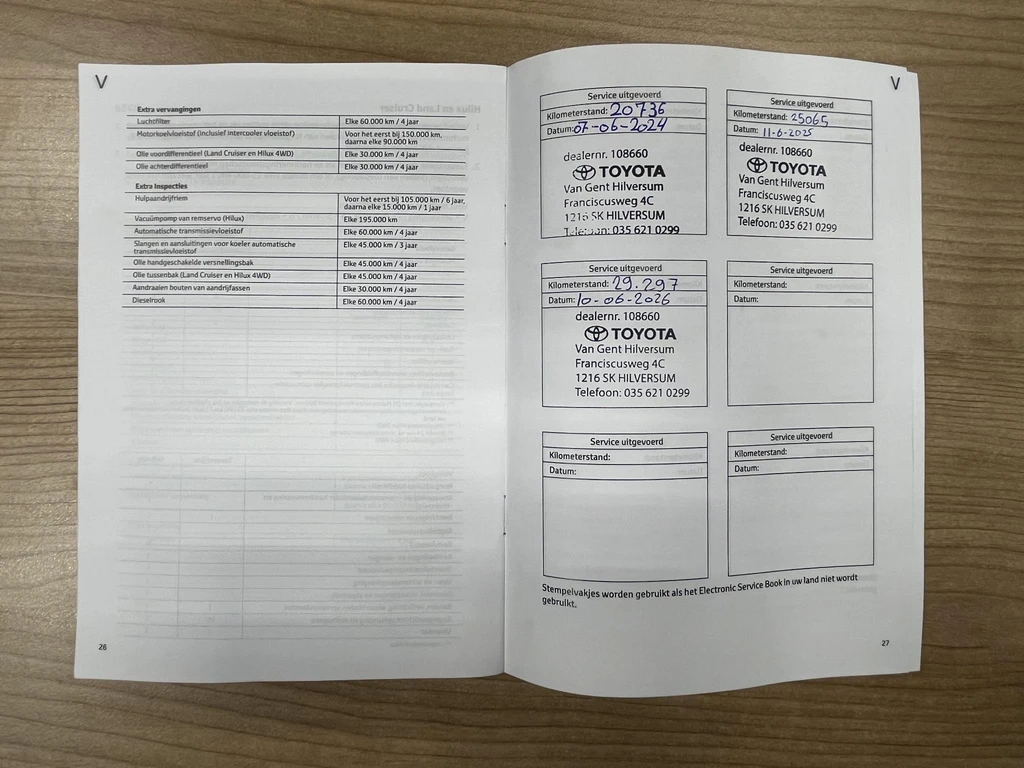 V
Extra vervangingen
Luchtfilter Elke 60.000 km / 4 jaar
Motorkoelvloeistof (inclusief intercooler vloeistof) Voor het eerst bij 150.000 km,
daarna elke 90.000 km
Olie voordifferentieel (Land Cruiser en Hilux 4WD) Elke 30.000 km / 4 jaar
Olie achterdifferentieel Elke 30.000 km / 4 jaar
Extra Inspecties
Hulpaandrijfriem Voor het eerst bij 105.000 km / 6 jaar,
daarna elke 15.000 km / 1 jaar
Vacuümpomp van remservo (Hilux) Elke 195.000 km
Automatische transmissievloeistof Elke 60.000 km / 4 jaar
Slangen en aansluitingen voor koeler automatische Elke 45.000 km / 3 jaar
transmissievloeistof
Olie handgeschakelde versnellingsbak Elke 45.000 km / 4 jaar
Olie tussenbak (Land Cruiser en Hilux 4WD) Elke 45.000 km / 4 jaar
Aandraaien bouten van aandrijfassen Elke 30.000 km / 4 jaar
Dieselrook Elke 60.000 km / 4 jaar
26
V
Service uitgevoerd
Kilometerstand: 20736
Datum: 07-06-2024
dealernr. 108660
TOYOTA
Van Gent Hilversum
Franciscusweg 4C
1216 SK HILVERSUM
Telefoon: 035 621 0299
Service uitgevoerd
Kilometerstand: 25065
Datum: 11-6-2025
dealernr. 108660
TOYOTA
Van Gent Hilversum
Franciscusweg 4C
1216 SK HILVERSUM
Telefoon: 035 621 0299
Service uitgevoerd
Kilometerstand: 29.297
Datum: 10-06-2026
dealernr. 108660
TOYOTA
Van Gent Hilversum
Franciscusweg 4C
1216 SK HILVERSUM
Telefoon: 035 621 0299
Service uitgevoerd
Kilometerstand:
Datum:
Service uitgevoerd
Kilometerstand:
Datum:
Service uitgevoerd
Kilometerstand:
Datum:
Stempelvakjes worden gebruikt als het Electronic Service Book in uw land niet wordt
gebruikt.
27